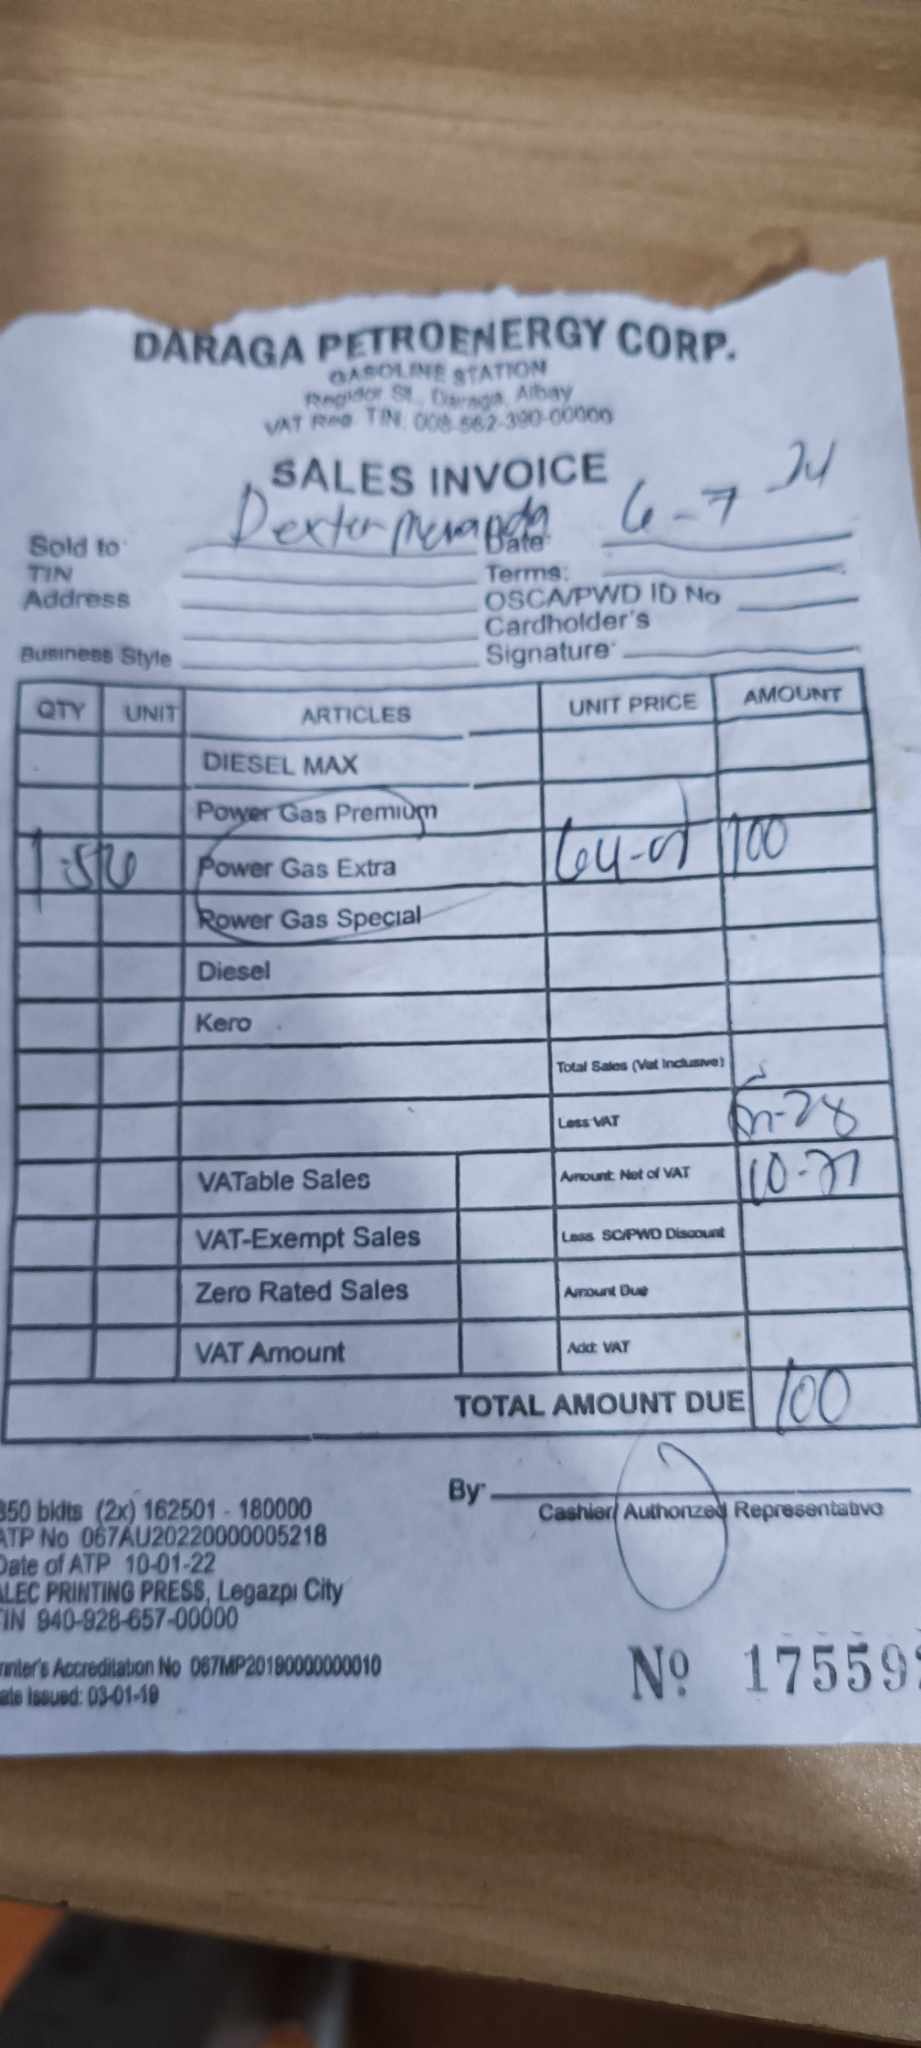 DARAGA PETROENERGY CORP.
GASOLINE STATION
Regidor St., Daraga, Albay
VAT Reg. TIN: 008-562-390-00000
SALES INVOICE
Sold to: Dexter Date: 6-7
TIN Terms:
Address OSCA/PWD ID No
Cardholder's
Business Style Signature:
QTY UNIT ARTICLES UNIT PRICE AMOUNT
DIESEL MAX
Power Gas Premium
Power Gas Extra 100
Power Gas Special
Diesel
Kero
Total Sales (Vat Inclusive)
Less VAT
VATable Sales Amount: Net of VAT
VAT-Exempt Sales Less SC/PWD Discount
Zero Rated Sales Amount Due
VAT Amount Add: VAT
TOTAL AMOUNT DUE 100
By:
Cashier/Authorized Representative
350 bklts (2x) 162501 - 180000
ATP No 067AU20220000005218
Date of ATP 10-01-22
ALEC PRINTING PRESS, Legazpi City
TIN 940-928-657-00000
Printer's Accreditation No 067MP20190000000010
Date Issued: 03-01-19
Nº 17559